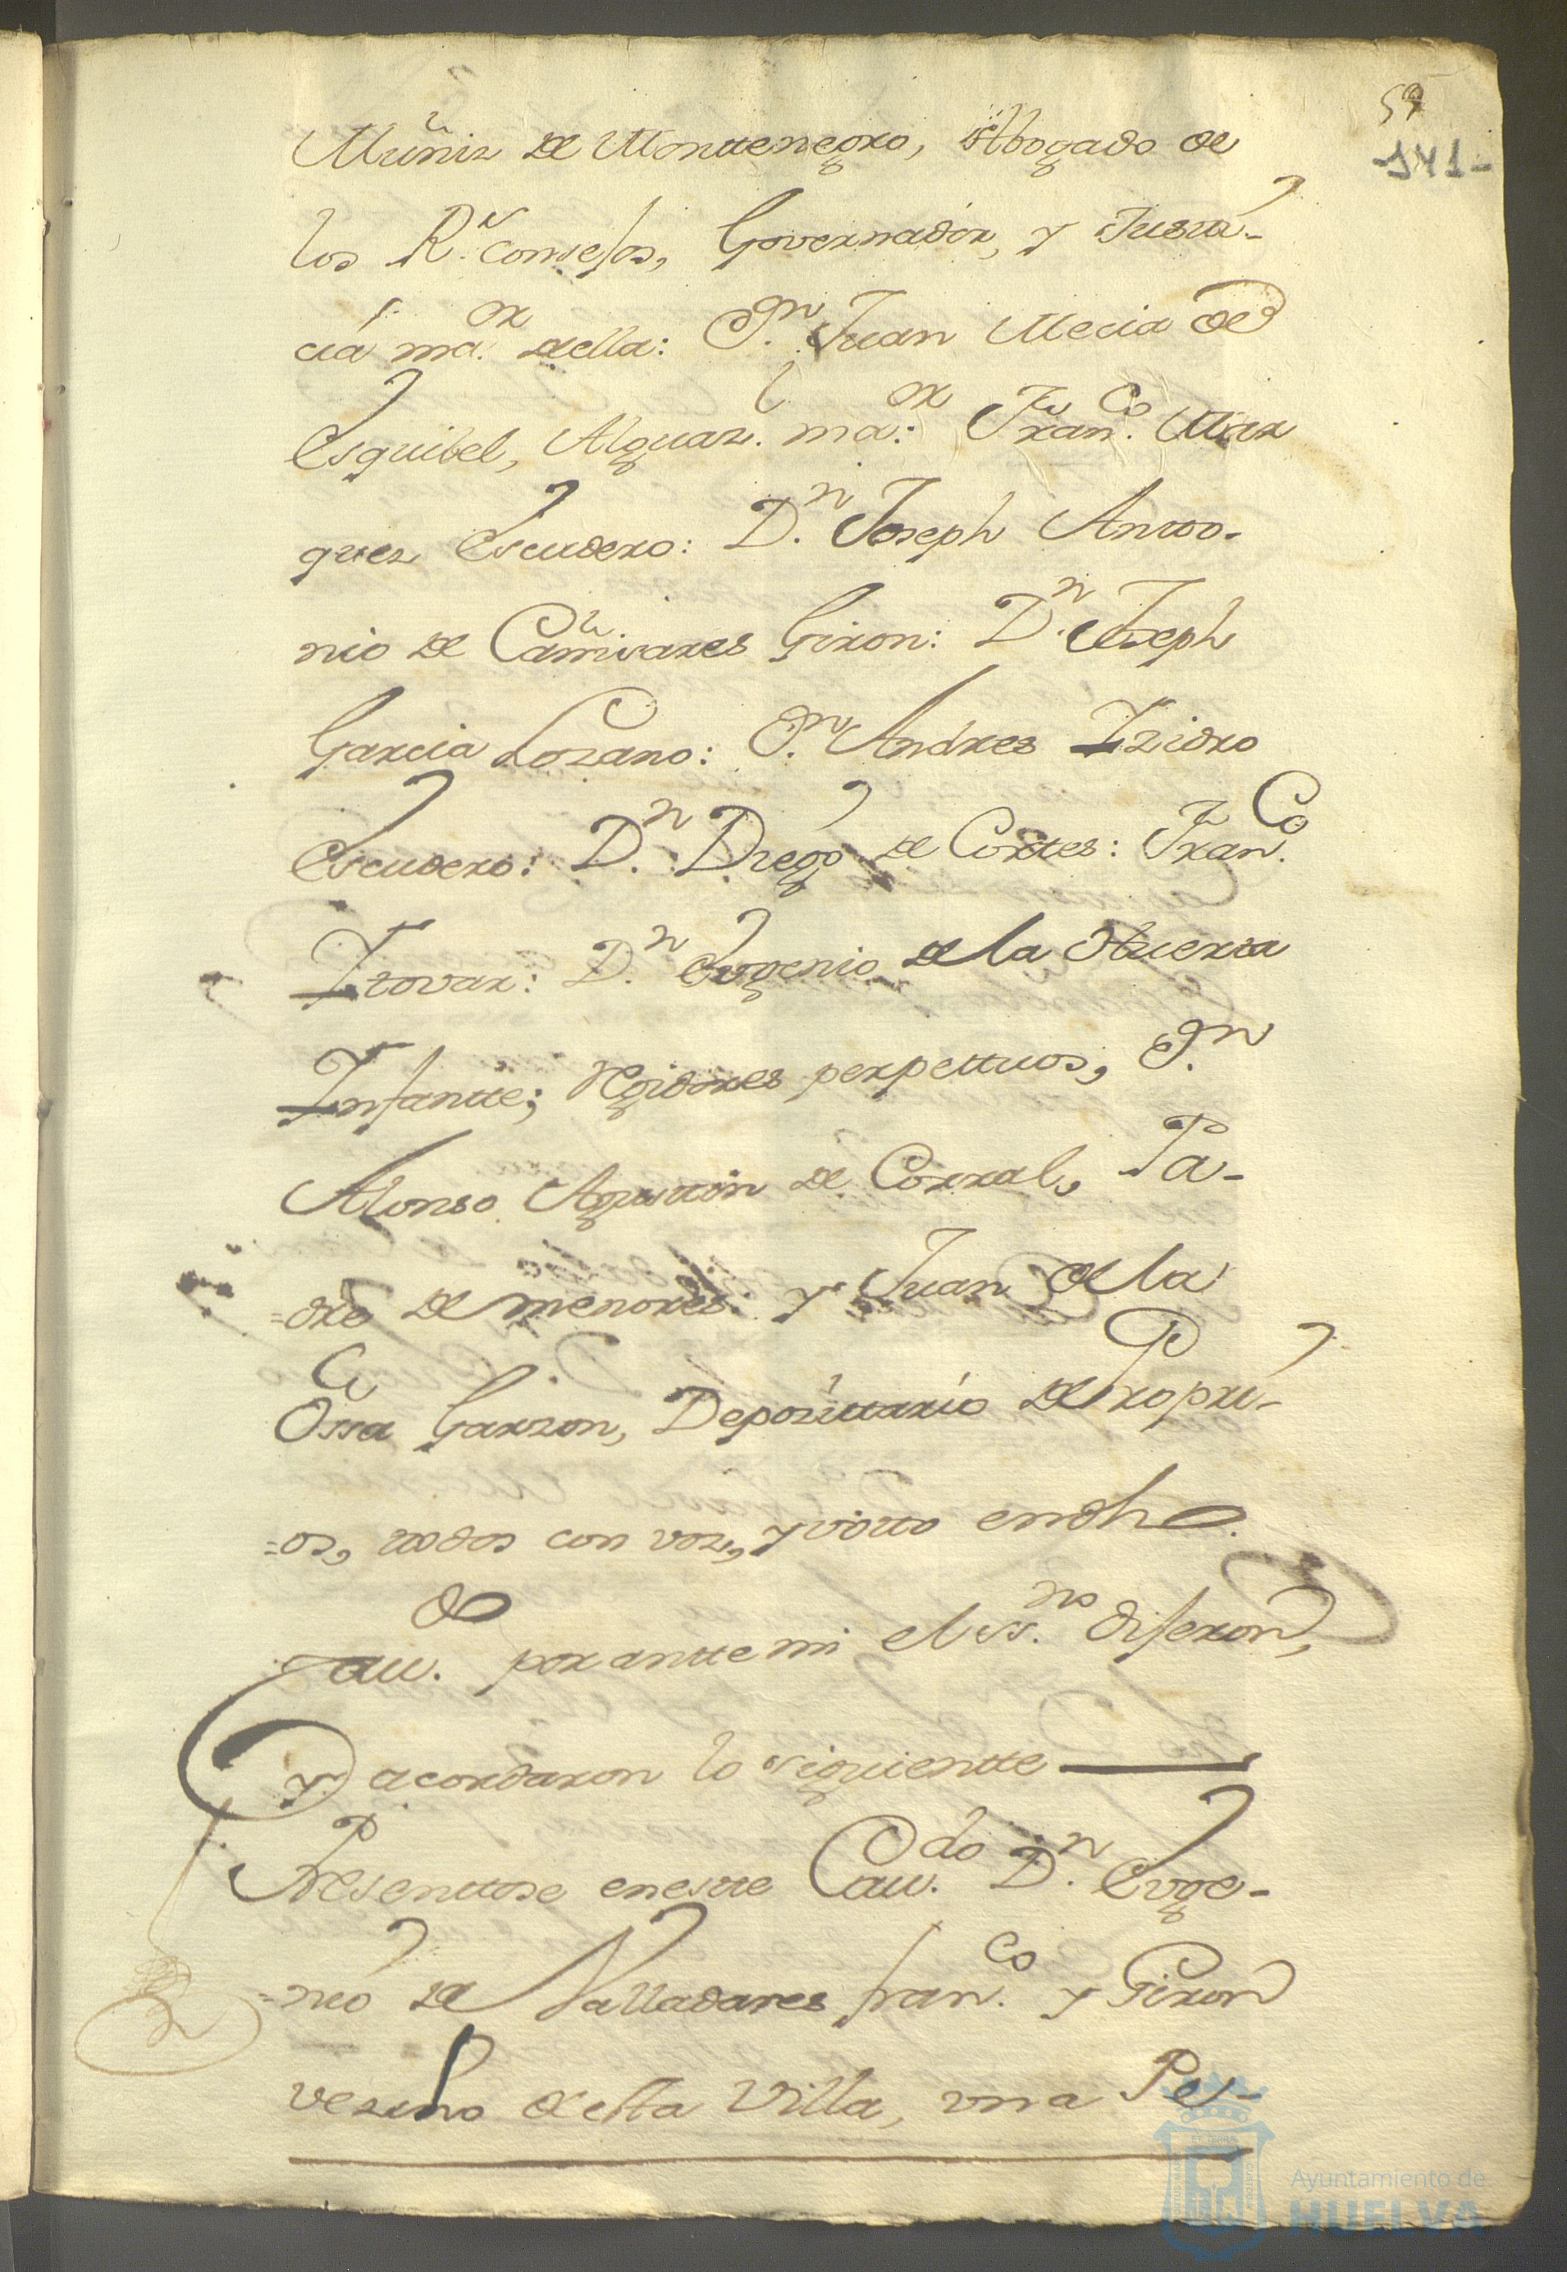 59
-141-
Muñiz de Monttenegro, Abogado de
los R.s consejos, Governador, y Justi-
cia ma.or della: D.n Juan Mecia de
Esquibel, Alguaz.l ma.or: Fran.co Mar
quez Escudero: D.n Joseph Antto-
nio de Cañivares Giron: D.n Joseph
Garcia Lozano: D.n Andres Izidro
Escudero: D.n Diego de Corttes: Fran.co
Ttovar: D.n Eugenio de la Huerta
Infantte; Regidores perpettuos, D.n
Alonso Agusttin de Corral, Pa-
=dre de menores: y Juan de la
Ossa Garzon, Depozittario de Propri-
=os, ttodos con voz, y votto en dho.
Cau.do por antte mi el ss.no dijeron,
y acordaron lo siguientte
Presenttose en estte Cau.do D.n Euge-
=nio de Valladares fran.co y Giron
vezino de esta Villa, vna Pe-
Ayuntamiento de
HUELVA